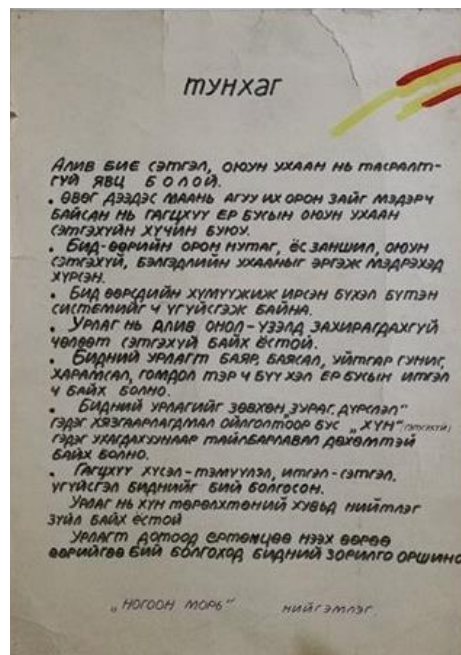 ТУНХАГ
АЛИВ БИЕ СЭТГЭЛ, ОЮУН УХААН НЬ ТАСРАЛТ-
ГҮЙ ЯВЦ БОЛОЙ.
• ӨВӨГ ДЭЭДЭС МААНЬ АГУУ ИХ ОРОН ЗАЙГ МЭДЭРЧ
БАЙСАН НЬ ГАГЦХҮҮ ЕР БУСЫН ОЮУН УХААН
СЭТГЭХҮЙН ХҮЧИН БУЮУ.
• БИД-ӨӨРИЙН ОРОН НУТАГ, ЁС ЗАНШИЛ, ОЮУН
СЭТГЭХҮЙ, БЭЛГЭДЛИЙН УХААНЫГ ЭРГЭЖ МЭДРЭХЭД
ХҮРСЭН.
• БИД ӨӨРСДИЙН ХҮМҮҮЖИЖ ИРСЭН БҮХЭЛ БҮТЭН
СИСТЕМИЙГ Ч ҮГҮЙСГЭЖ БАЙНА.
• УРЛАГ НЬ АЛИВ ОНОЛ-ҮЗЭЛД ЗАХИРАГДАХГҮЙ
ЧӨЛӨӨТ СЭТГЭХҮЙ БАЙХ ЁСТОЙ.
• БИДНИЙ УРЛАГТ БАЯР, БАЯСАЛ, УЙТГАР ГУНИГ,
ХАРАМСАЛ, ГОМДОЛ ТЭР Ч БҮҮ ХЭЛ ЕР БУСЫН ИТГЭЛ
Ч БАЙХ БОЛНО.
• БИДНИЙ УРЛАГИЙГ ЗӨВХӨН „ЗУРАГ, ДҮРСЛЭЛ"
ГЭДЭГ ХЯЗГААРЛАГДМАЛ ОЙЛГОЛТООР БУС „ХҮН"
ГЭДЭГ УХАГДАХУУНААР ТАЙЛБАРЛАВАЛ ДӨХӨМТЭЙ
БАЙХ БОЛНО.
• ГАГЦХҮҮ ХҮСЭЛ-ТЭМҮҮЛЭЛ, ИТГЭЛ-СЭТГЭЛ,
ҮГҮЙСГЭЛ БИДНИЙГ БИЙ БОЛГОСОН.
УРЛАГ НЬ ХҮН ТӨРӨЛХТӨНИЙ ХУВЬД НИЙТЛЭГ
ЗҮЙЛ БАЙХ ЁСТОЙ
УРЛАГТ ДОТООД ЕРТӨНЦӨӨ НЭЭХ ӨӨРӨӨ
ӨӨРИЙГӨӨ БИЙ БОЛГОХОД БИДНИЙ ЗОРИЛГО ОРШИНО
„НОГООН МОРЬ" НИЙГЭМЛЭГ.